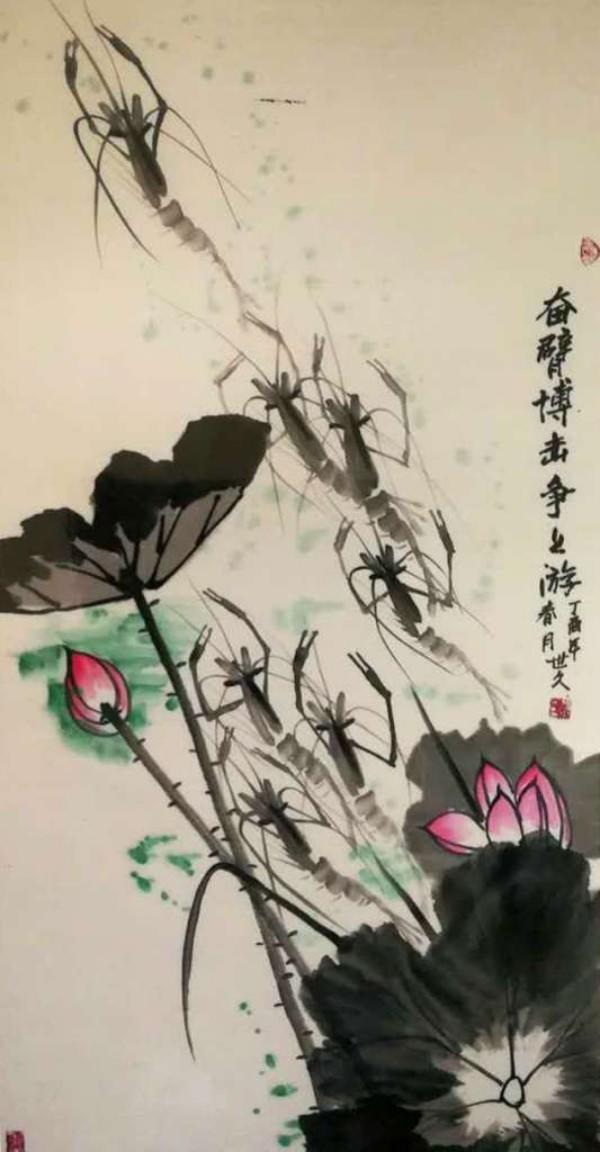 奋臂博击争上游
丁酉年
春月
世久